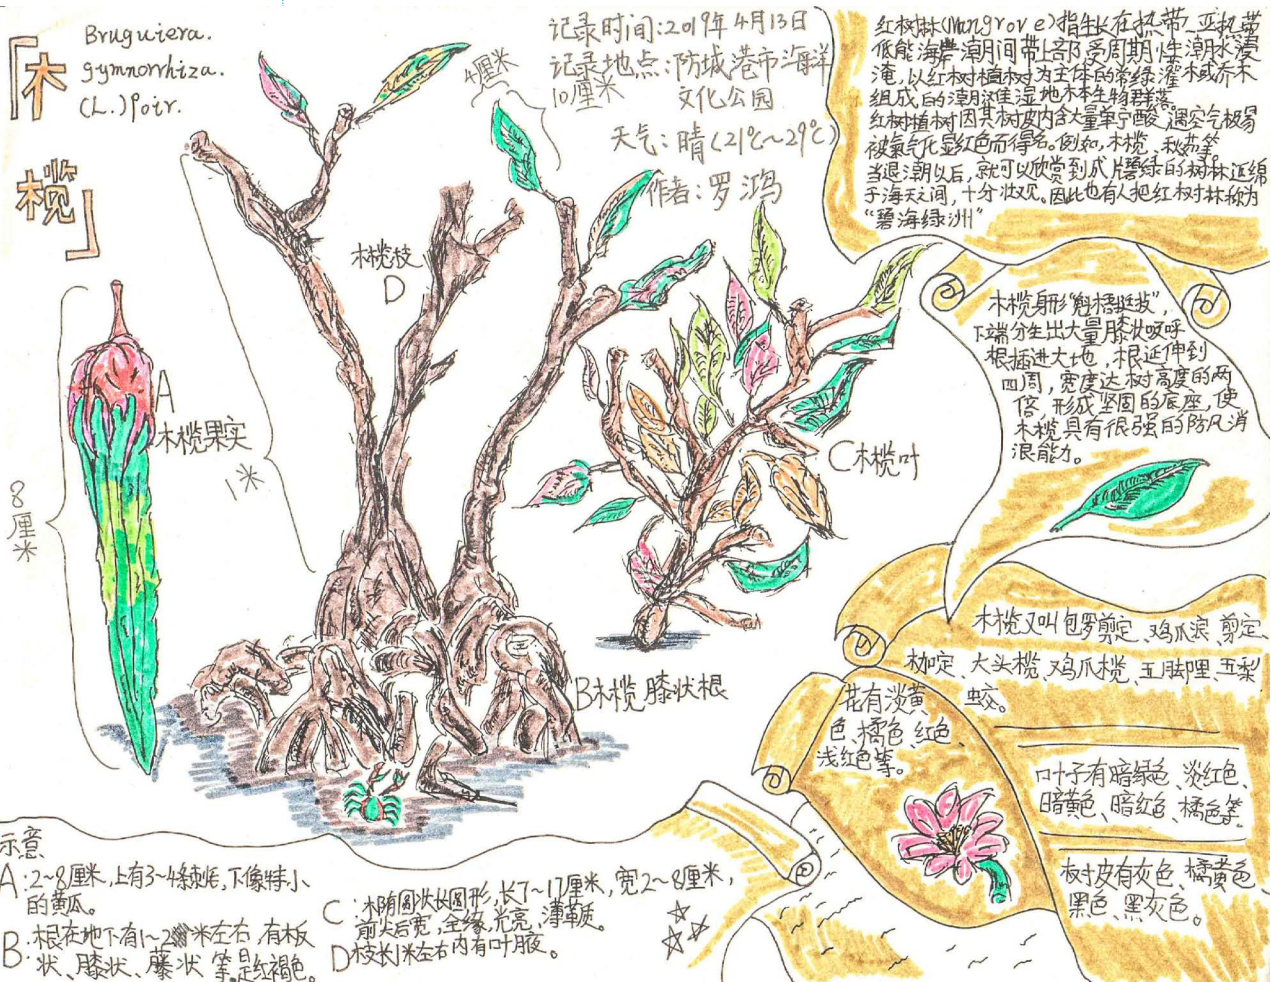 「木
榄」
Bruguiera.
gymnorrhiza.
(L.)Poir.
记录时间:2019年4月13日
记录地点:防城港市海洋
文化公园
天气:晴(21℃~29℃)
作者:罗鸿
4厘米
10厘米
木榄枝
D
A
木榄果实
8厘米
1米
C木榄叶
B木榄膝状根
红树林(Mangrove)指生长在热带、亚热带
低能海岸潮间带上部,受周期性潮水浸
淹,以红树植树为主体的常绿灌木或乔木
组成的潮滩湿地木本生物群落。
红树植树因其树皮内含大量单宁酸,遇空气极易
被氧气化显红色而得名。例如,木榄、秋茄等
当退潮以后,就可以欣赏到成片碧绿的树林延绵
于海天之间,十分壮观。因此也有人把红树林称为
“碧海绿洲”
木榄身形“魁梧挺拔”,
下端分生出大量膝状呼吸
根插进大地,根延伸到
四周,宽度达树高度的两
倍,形成坚固的底座,使
木榄具有很强的防风消
浪能力。
木榄又叫包罗剪定、鸡爪浪、剪定、
枷定、大头榄、鸡爪榄、五脚哩、五梨
蛟。
花有淡黄
色、橘色、红色、
浅红色等。
叶子有暗绿色、淡红色、
暗黄色、暗红色、橘色等。
树皮有灰色、橘黄色、
黑色、黑灰色。
示意
A:2~8厘米,上有3~4条刺
下像特小
的黄瓜。
B:根在地下有1~2米左右,有板
状、膝状、藤状等,是红褐色。
C:椭圆状长圆形,长7~17厘米,宽2~8厘米,
前尖后宽,全缘,光亮,薄革质。
D枝长1米左右内有叶腋。